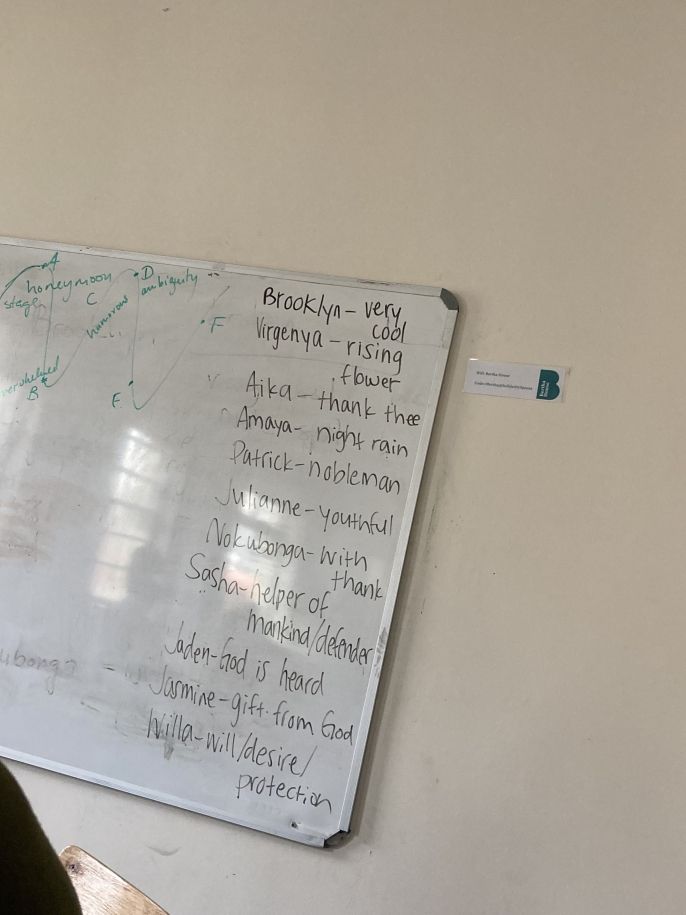 A
honeymoon
stage
C
humorous
D
ambiguity
F
B
E
Brooklyn - very
cool
Virgenya - rising
flower
Aika - thank thee
Amaya - night rain
Patrick - nobleman
Julianne - youthful
Nokubonga - with
thank
Sasha - helper of
mankind/defender
Jaden - God is heard
Jasmine - gift from God
Willa - will/desire/
protection
bertha
house